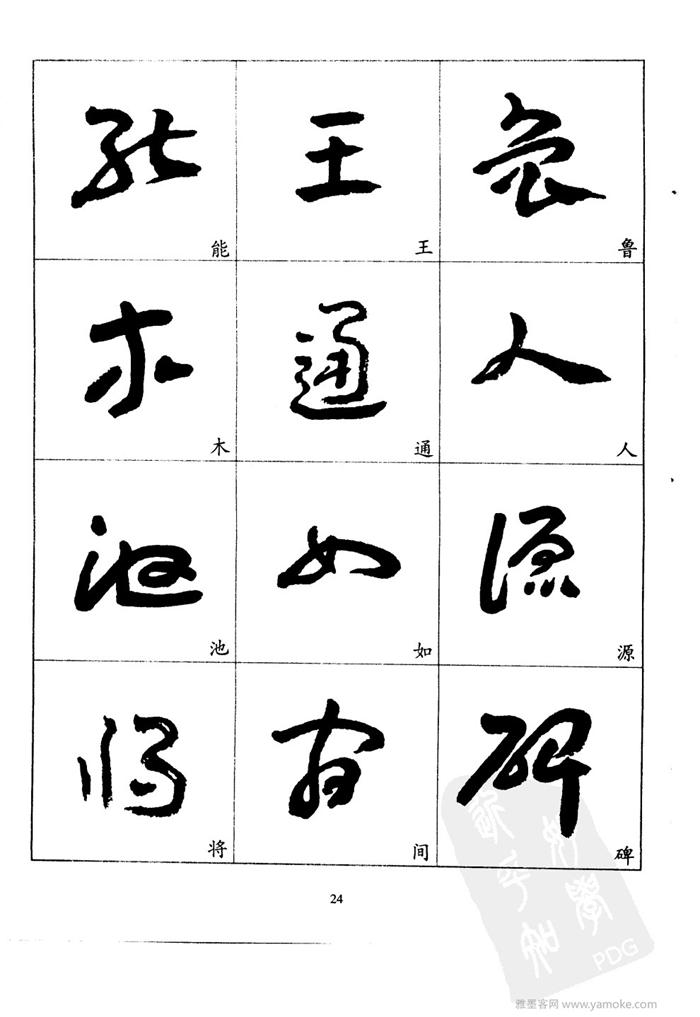 能 王 鲁
木 通 人
池 如 源
将 间 碑
24
PDG
雅墨客网 www.yamoke.com